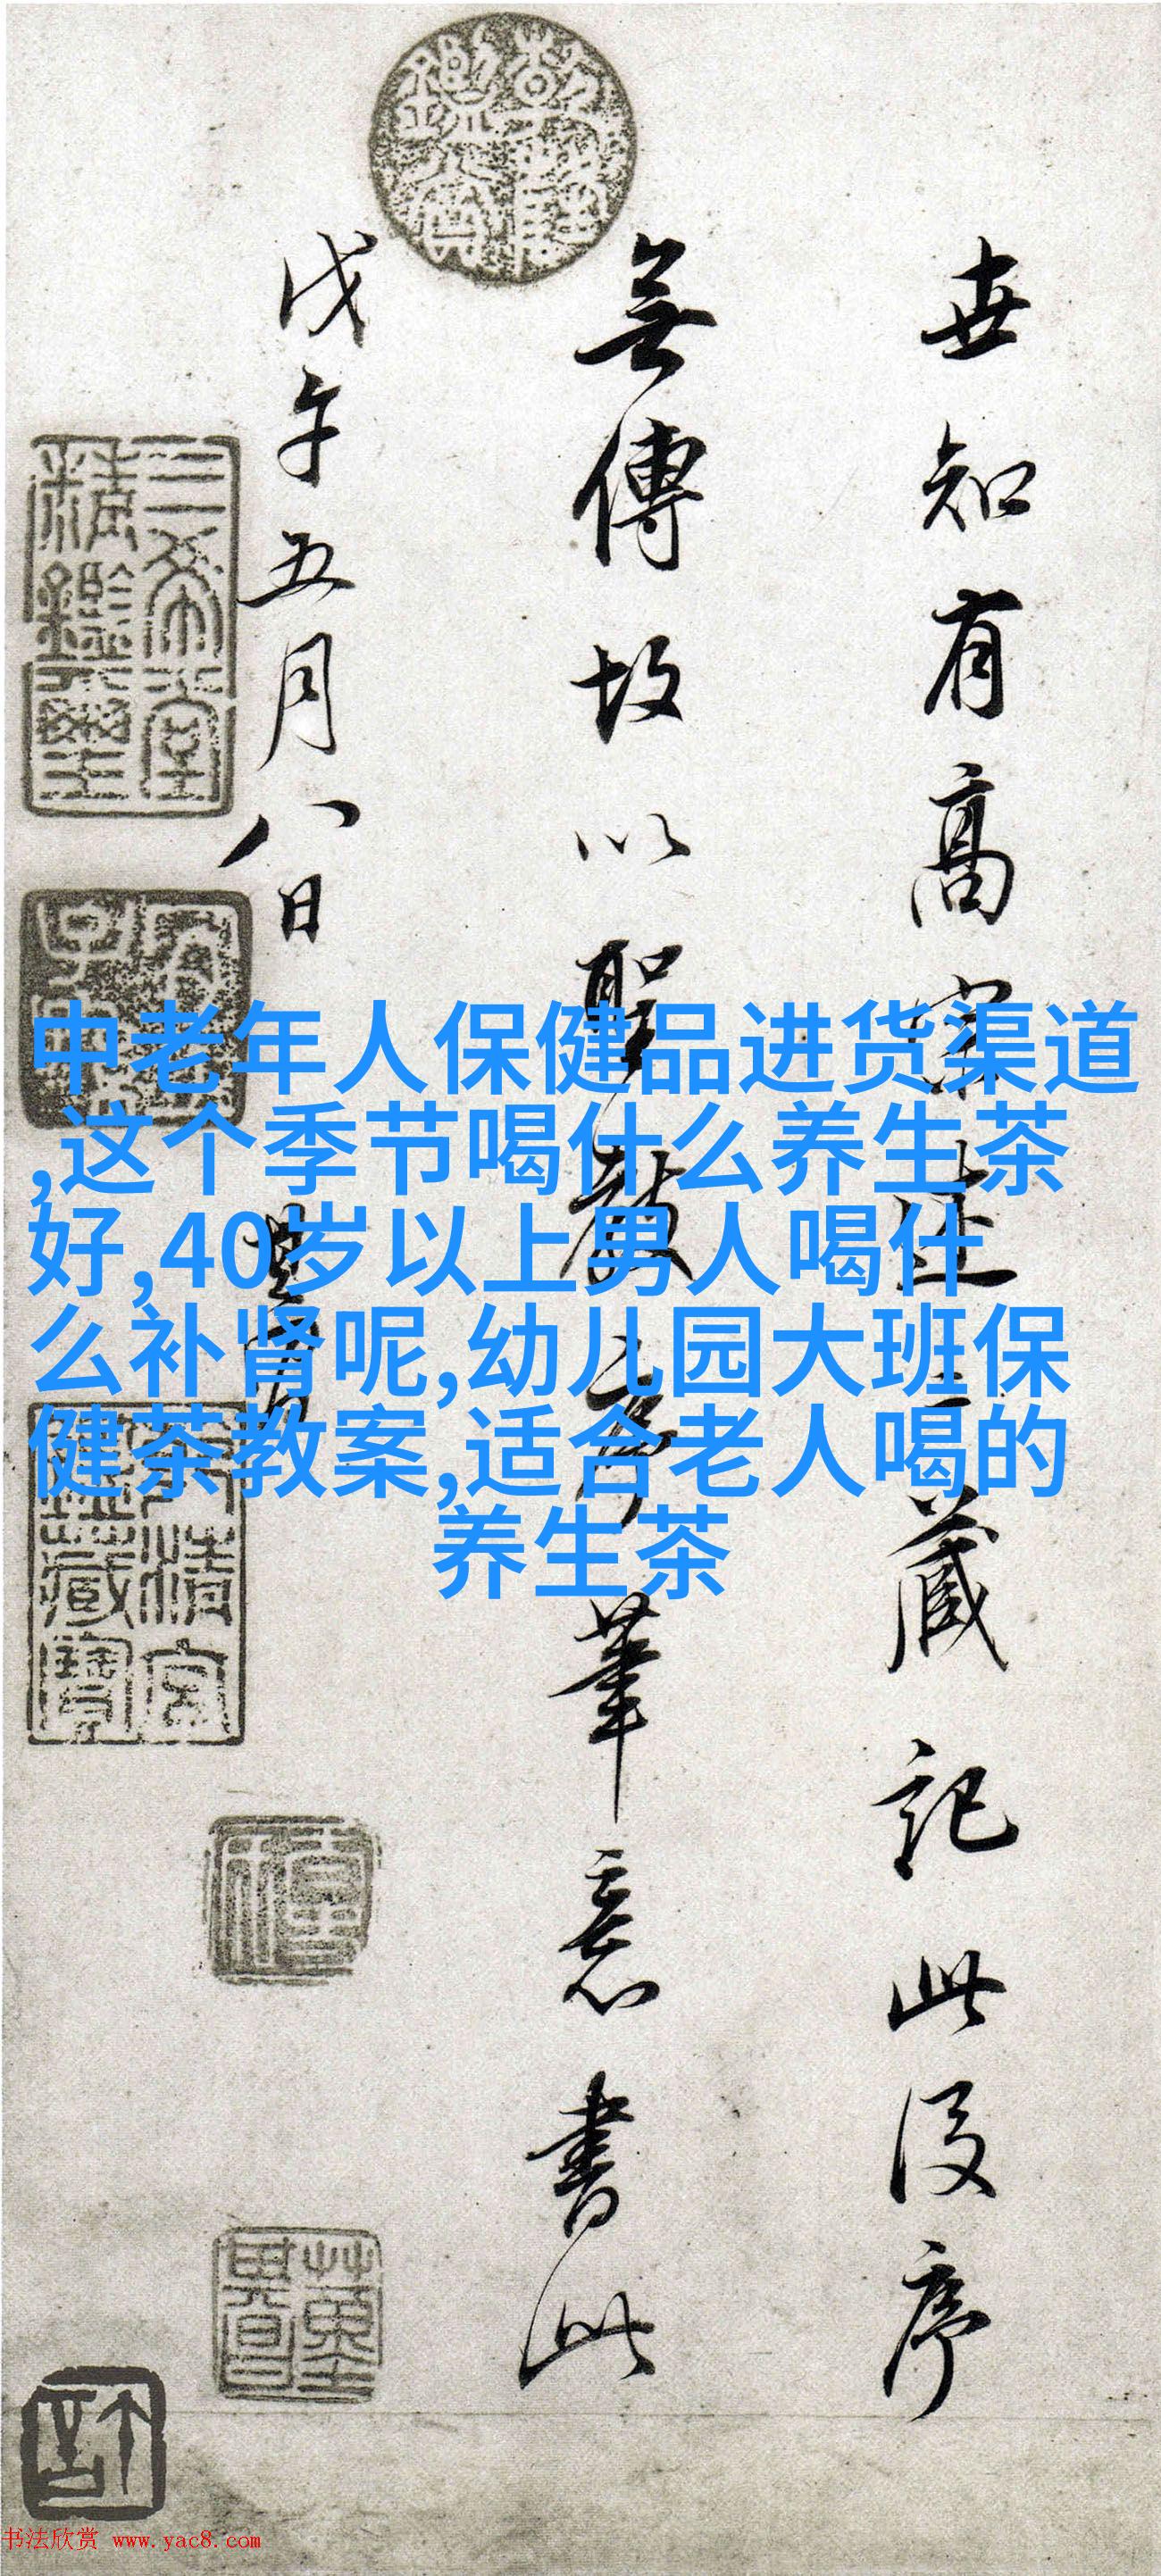 世知有高宗述三藏記此後序
無傳故以聖教序筆意書此
戊午五月八日
中老年人保健品进货渠道
,这个季节喝什么养生茶
好,40岁以上男人喝什
么补肾呢,幼儿园大班保
健茶教案,适合老人喝的
养生茶
三希堂
精鑑璽
乾清宮
鑑藏寶
书法欣赏 www.yac8.com